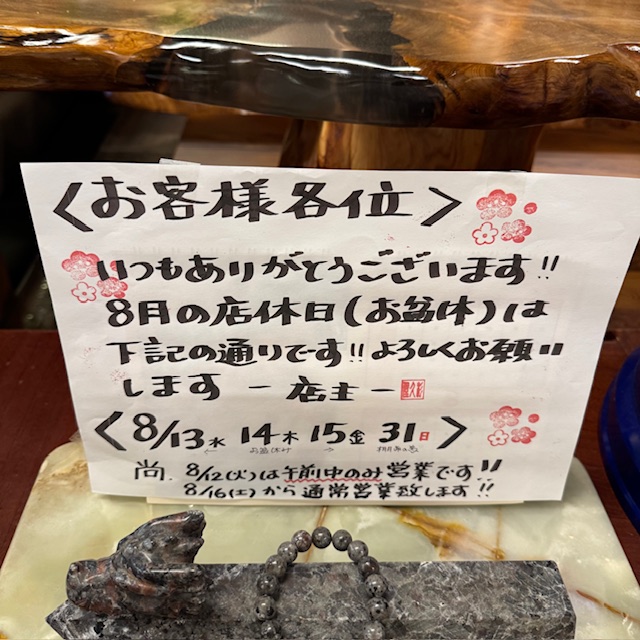 〈お客様各位〉
いつもありがとうございます!!
8月の店休日(お盆休)は
下記の通りです!!よろしくお願い
します ー 店主 ー
〈8/13水 14木 15金 31日〉
← お盆休み →
尚、8/12(火)は午前中のみ営業です!!
8/16(土)から通常営業致します!!